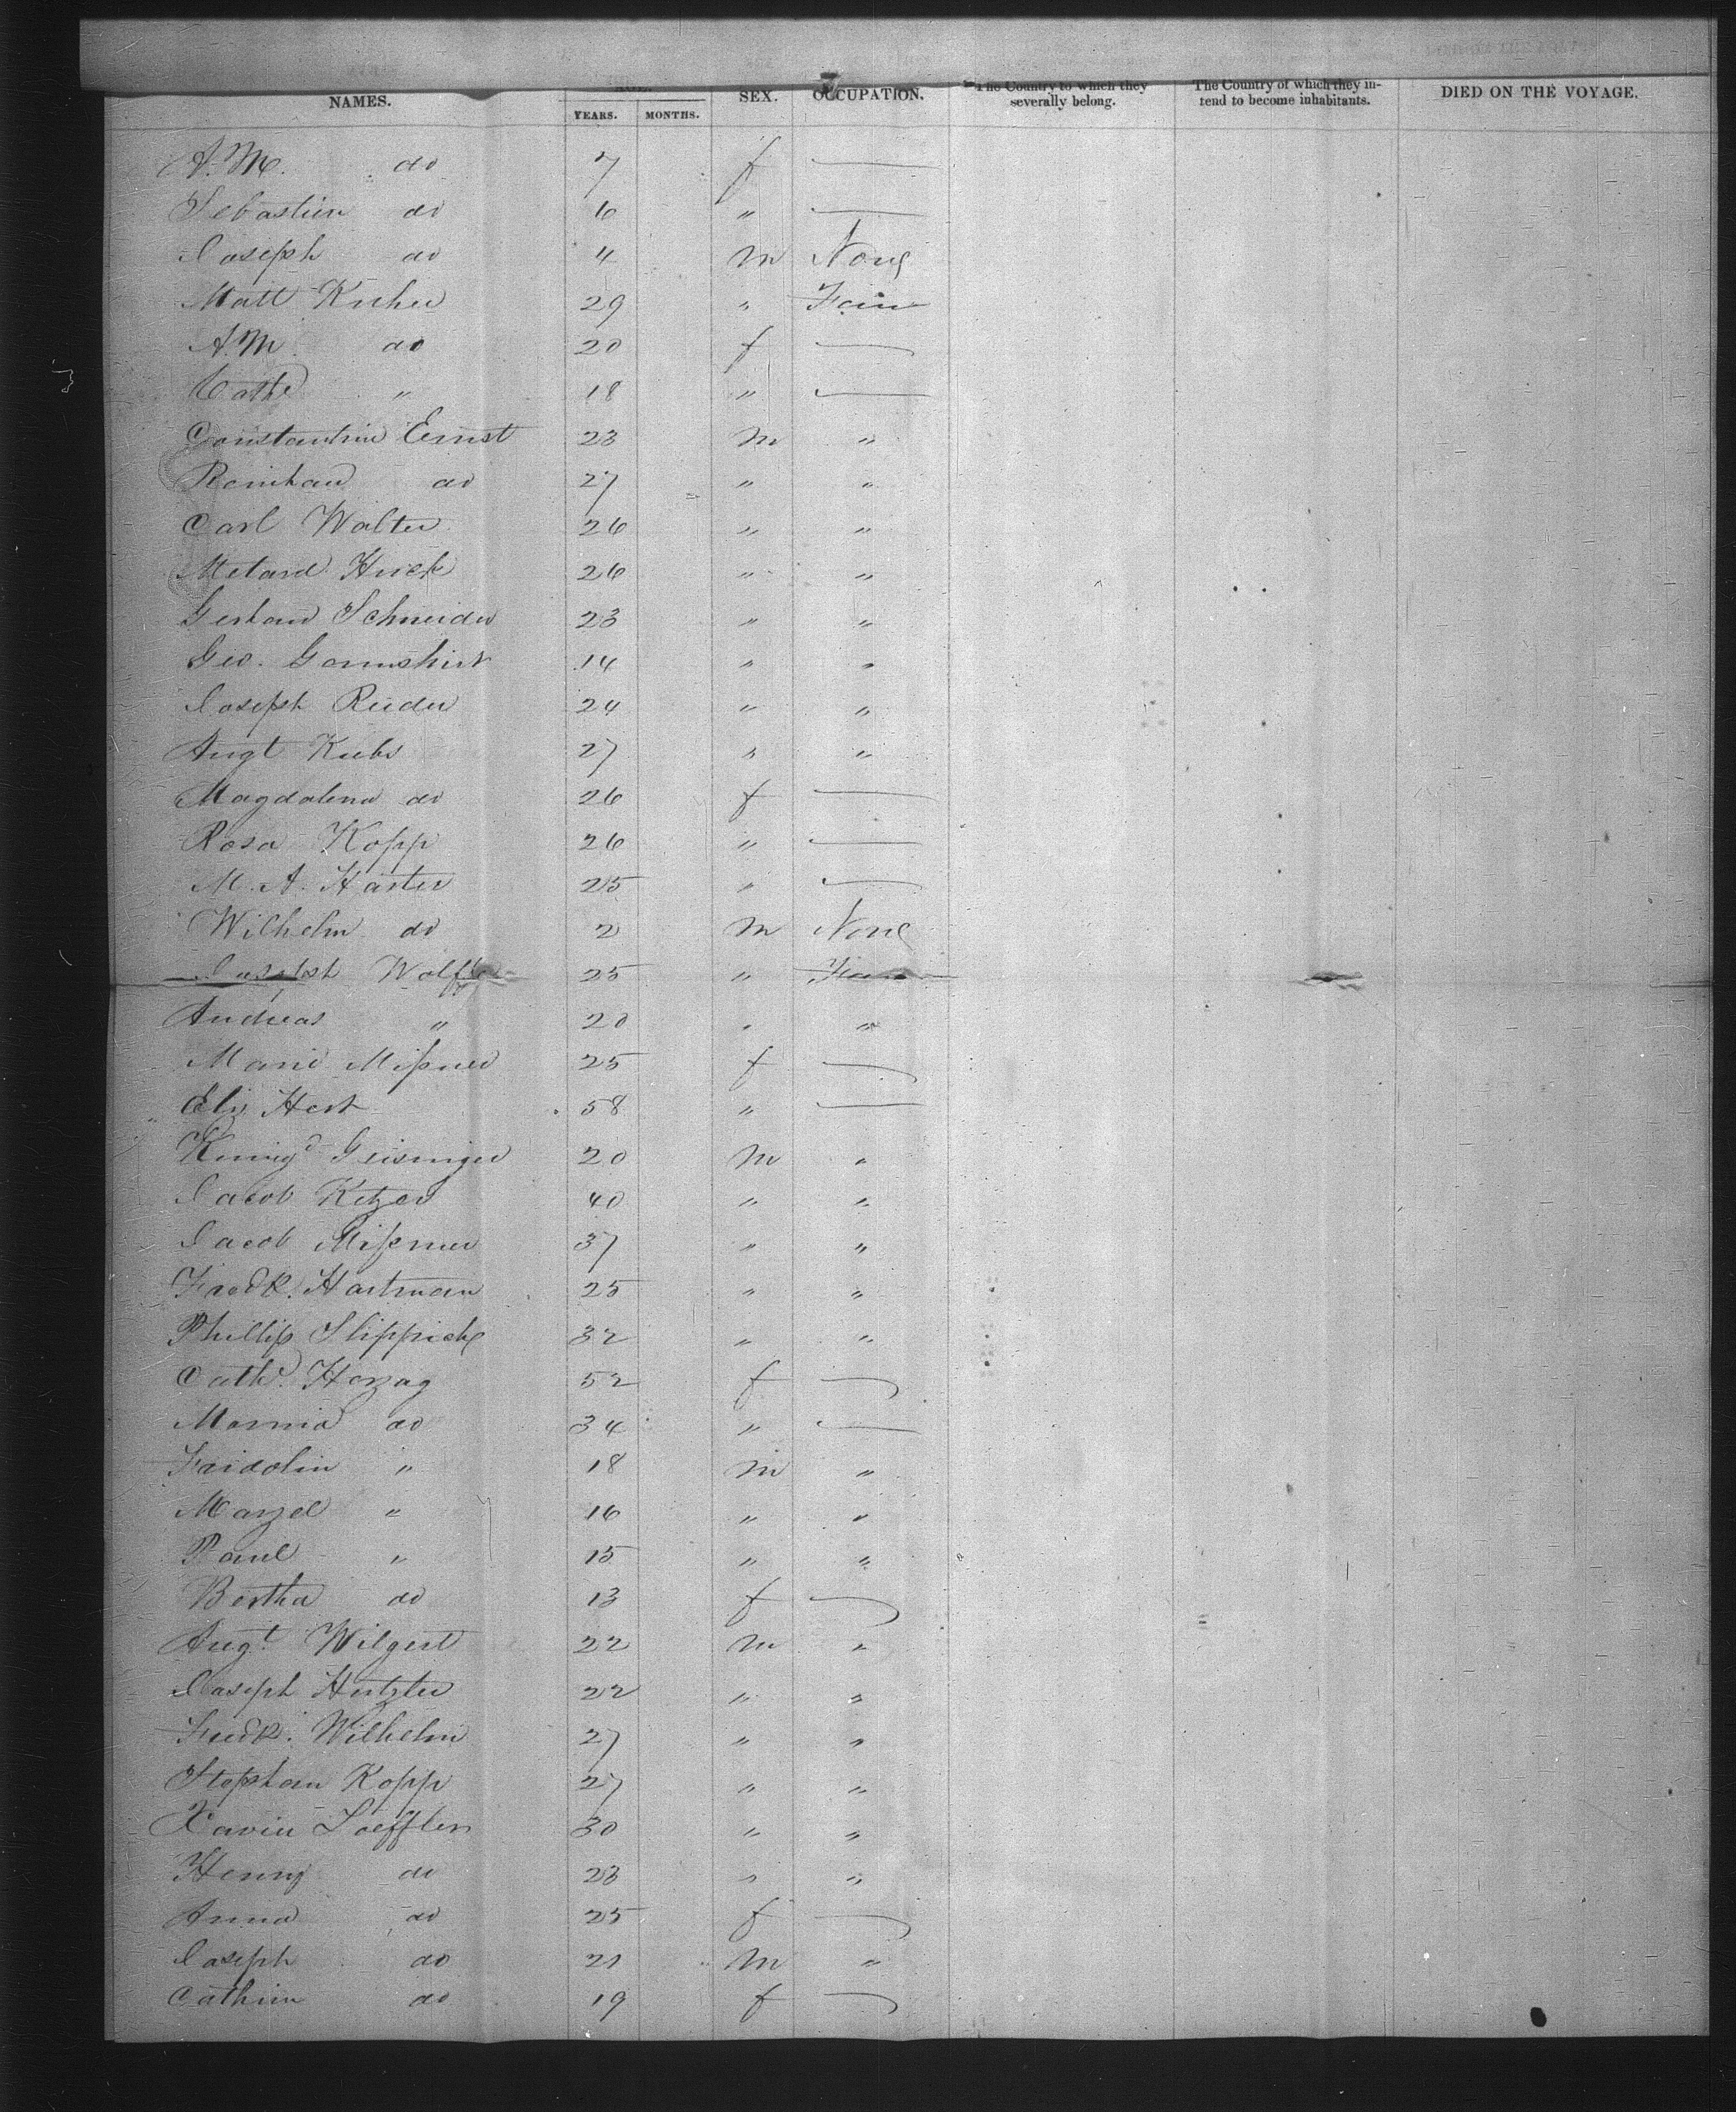 NAMES. AGE. YEARS. MONTHS. SEX. OCCUPATION. The Country to which they severally belong. The Country of which they intend to become inhabitants. DIED ON THE VOYAGE.
A. M. do 7 f —
Sebastien do 6 " —
Joseph do 4 m None
Matt 29 "
A. M. do 20 f —
Cathe " 18 " —
Constantin Ernst 23 m "
do 27 " "
Carl Walter 26 " "
26 " "
Schneider 23 " "
Geo. 14 " "
Joseph Rieder 24 " "
Augt Kubs 27 " "
Magdalena do 26 f —
Rosa Kopp 26 " —
M. A. Harter 25 " —
Wilhelm do 2 m None
Joseph Wolffle 25 "
Andreas " 20 " "
Marie Missner 25 f —
Eliz Hert 58 " —
Geisinger 20 m "
Jacob Ketzer 40 " "
Jacob Missner 37 " "
Fredk. Hartman 25 " "
Phillip 32 " "
Cathe. Herzag 52 f —
do 34 " —
Fridolin " 18 m "
Marzel " 16 " "
Paul " 15 " "
Bertha do 13 f —
Augt. Wilgert 22 m "
Joseph Hertzler 22 " "
Fredk. Wilhelm 27 " "
Stephan Kopp 27 " "
Xavier Loeffler 30 " "
Henry do 23 " "
Anna do 25 f —
Joseph do 21 m "
Cathrin do 19 f —